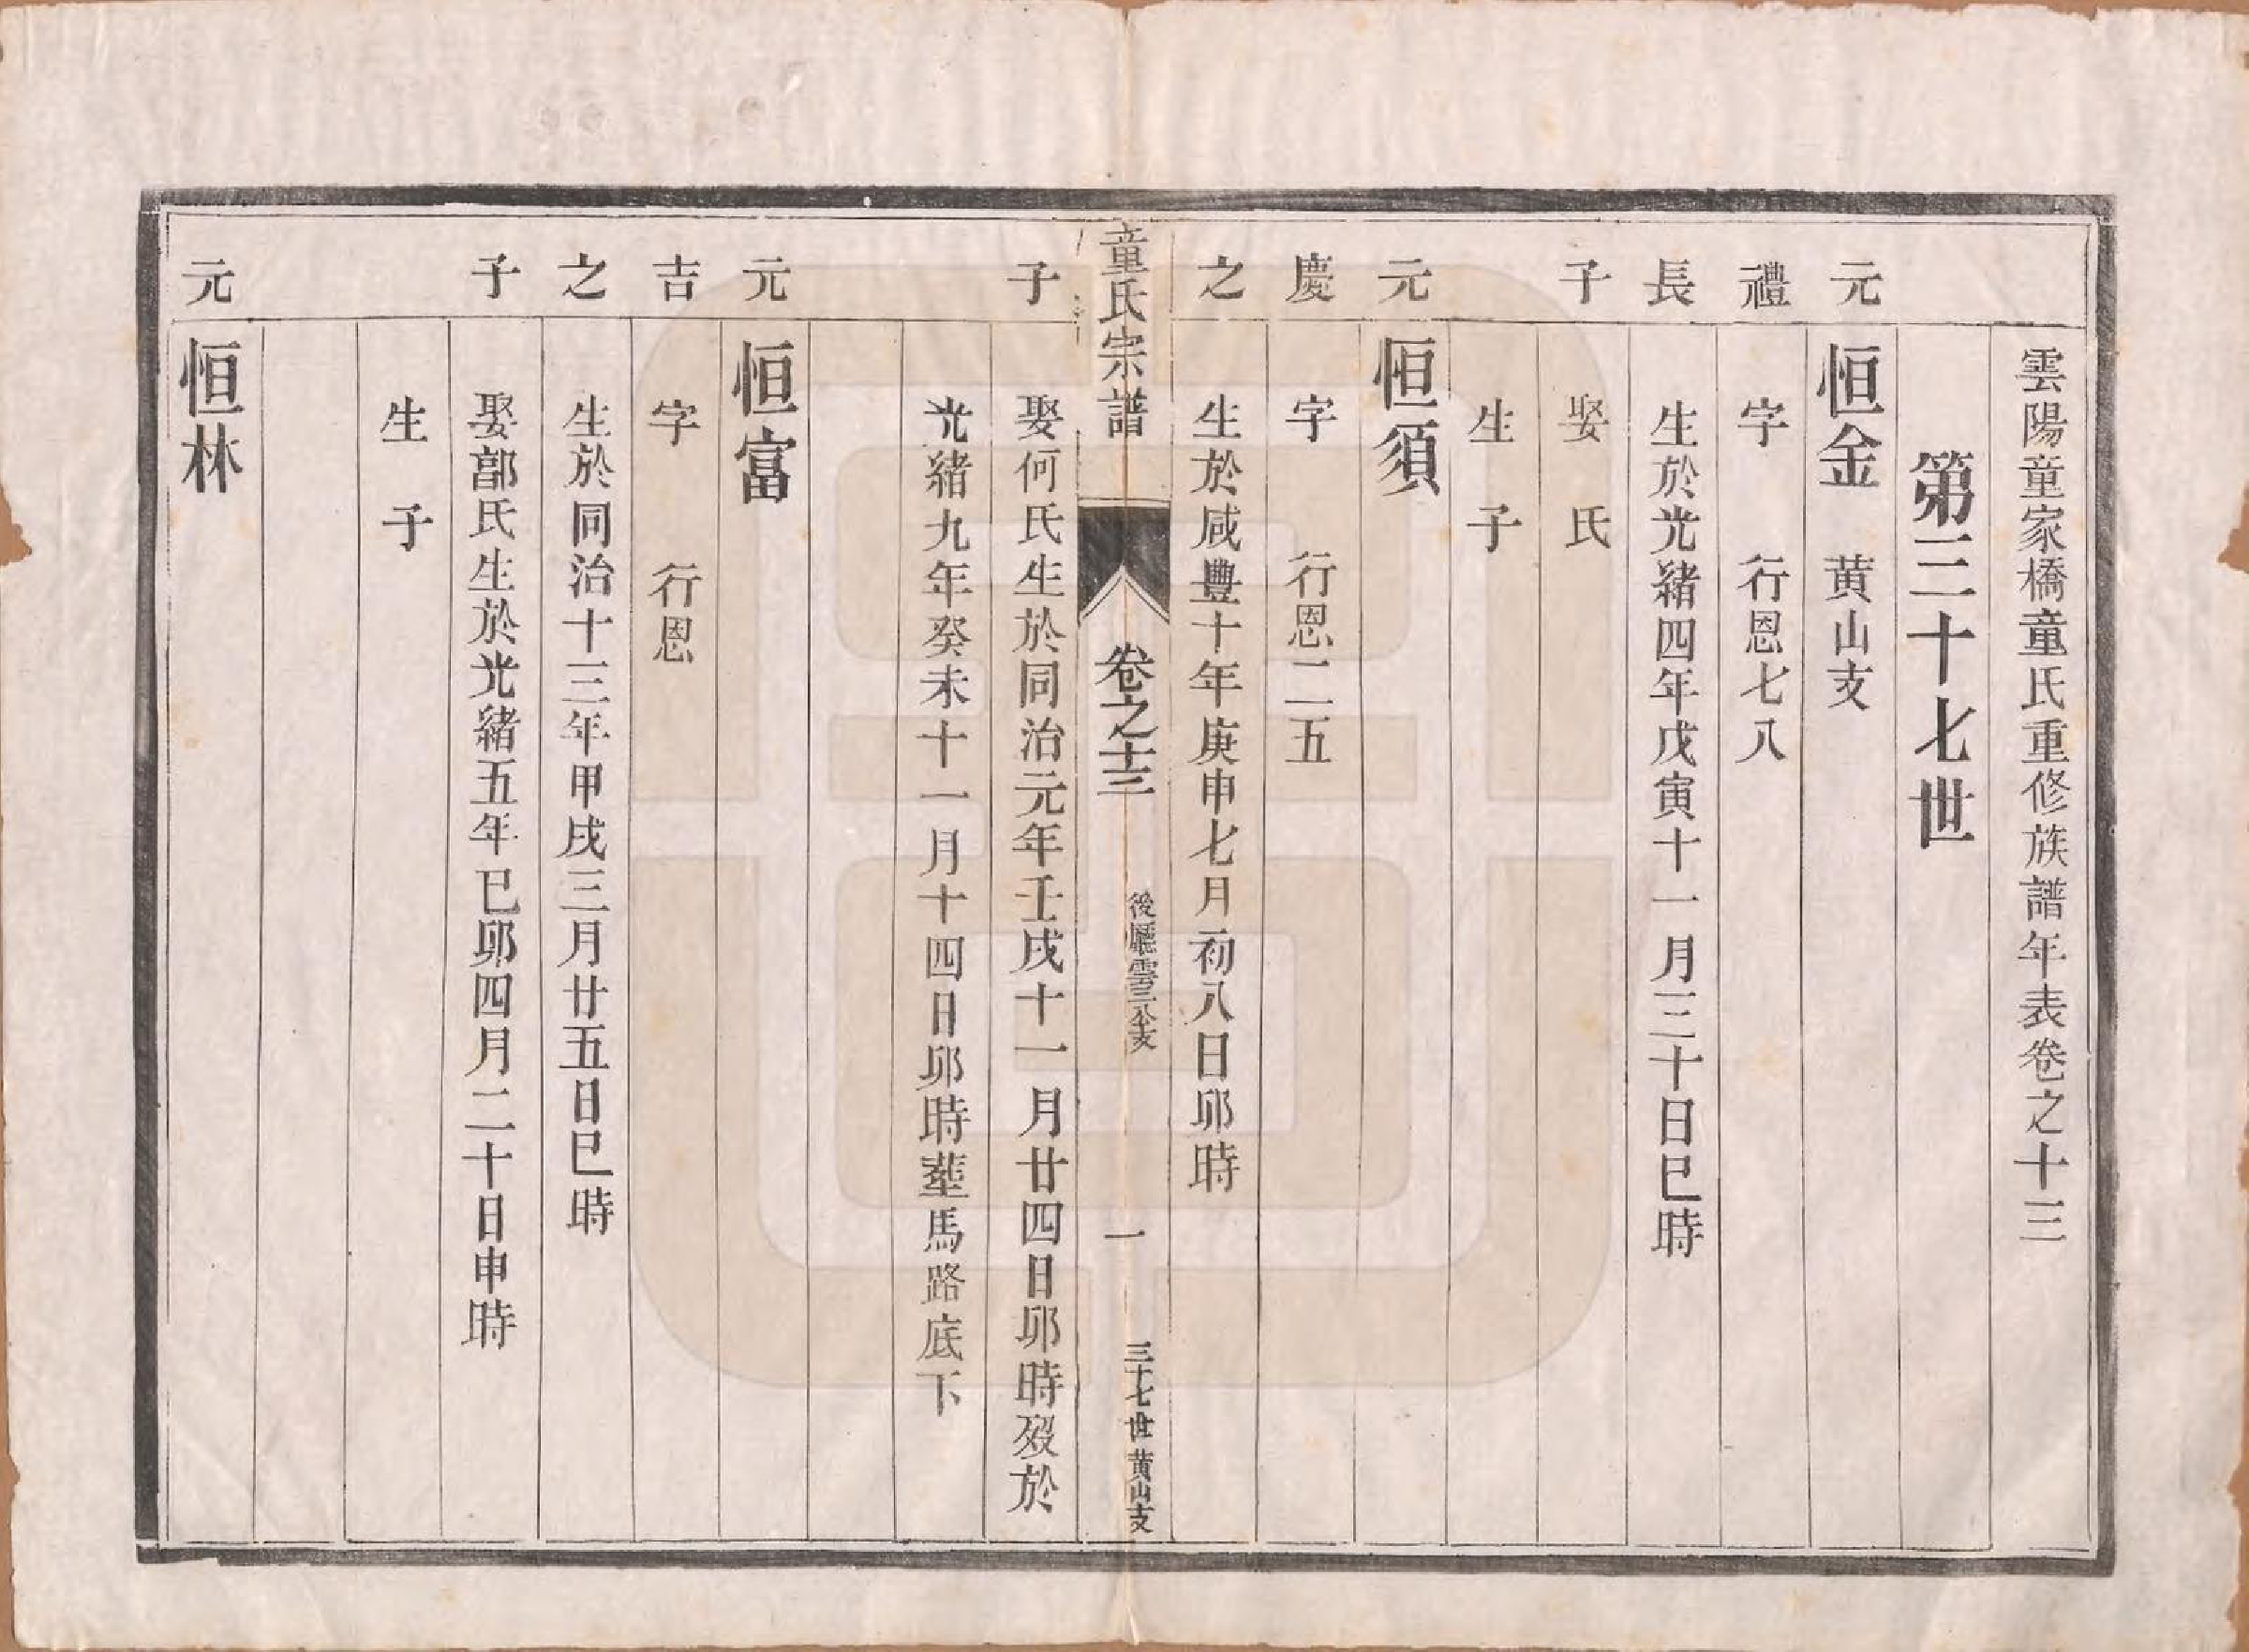 雲陽童家橋童氏重修族譜年表卷之十三
第三十七世
元 恒金 黄山支
禮 字 行恩七八
長 生於光緒四年戊寅十一月三十日巳時
子 娶 氏
生 子
元 恒須
慶 字 行恩二五
之 生於咸豐十年庚申七月初八日卯時
童氏宗譜 卷之十三 後雲三公支 一 三十七世 黄山支
子 娶何氏生於同治元年壬戌十一月廿四日卯時歿於
光緒九年癸未十一月十四日卯時塟馬路底下
元 恒富
吉 字 行恩
之 生於同治十三年甲戌三月廿五日巳時
子 娶郭氏生於光緒五年巳卯四月二十日申時
生 子
元 恒林